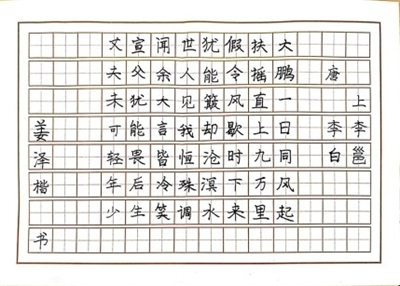 上李邕
唐李白
大鹏一日同风起
扶摇直上九万里
假令风歇时下来
犹能簸却沧溟水
世人见我恒殊调
闻余大言皆冷笑
宣父犹能畏后生
丈夫未可轻年少
姜泽楷书